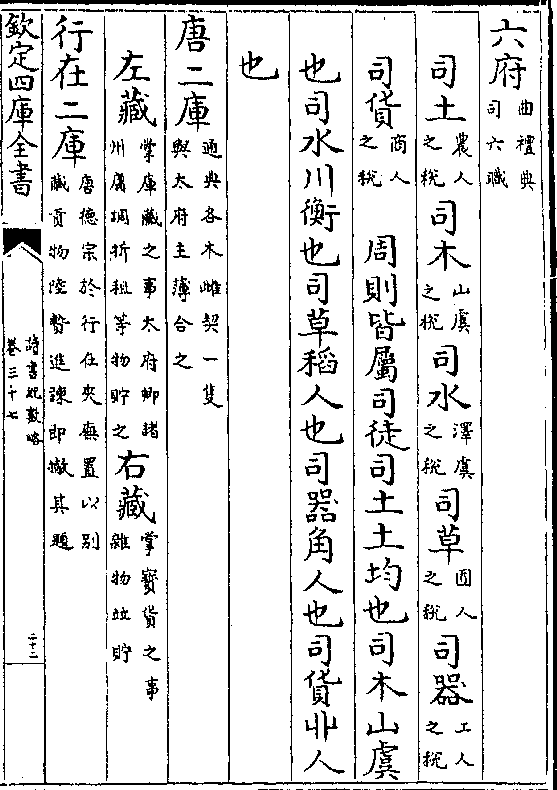 六府曲禮典司六職
司土農人之稅司木山虞之稅司水澤虞之稅司草囿人之稅司器工人之稅
司貨商人之稅　周則皆屬司徒司土土均也司木山虞
也司水川衡也司草稻人也司器角人也司貨丱人
也
唐二庫通典各木雌契一隻與太府主簿合之
左藏掌庫藏之事太府卿諸州庸調折租等物貯之右藏掌寶貨之事雜物竝貯
行在二庫唐德宗於行在夾廡置以别藏貢物陸贄進諫即撤其題
欽定四庫全書
讀書紀數略
卷三十七
二十二